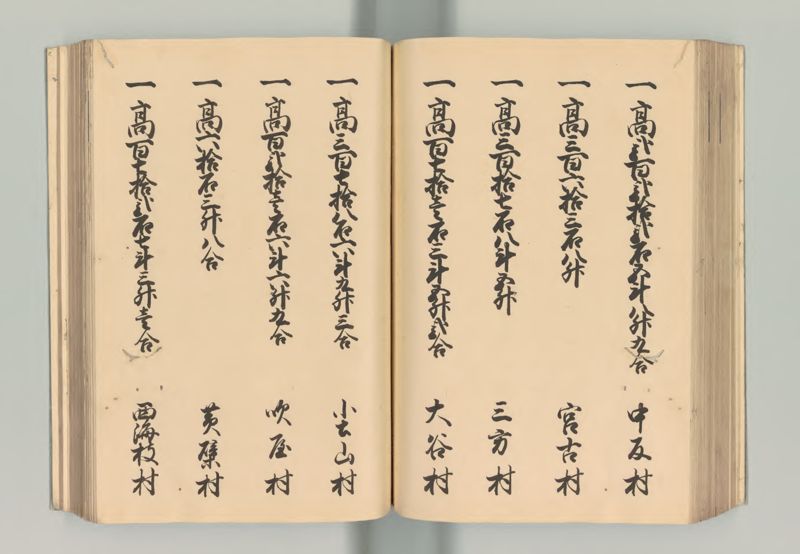 一 高弐百弐拾弐石五斗八升九合 中反村
一 高三百六拾三石八升 宮古村
一 高三百拾七石八斗五升 三方村
一 高百七拾壱石三斗五升弐合 大谷村
一 高三百七拾八石六斗九升三合 小古山村
一 高百弐拾壱石六斗六升九合 吹屋村
一 高八拾石三升八合 黄檗村
一 高百七拾弐石七斗三升壱合 西海枝村